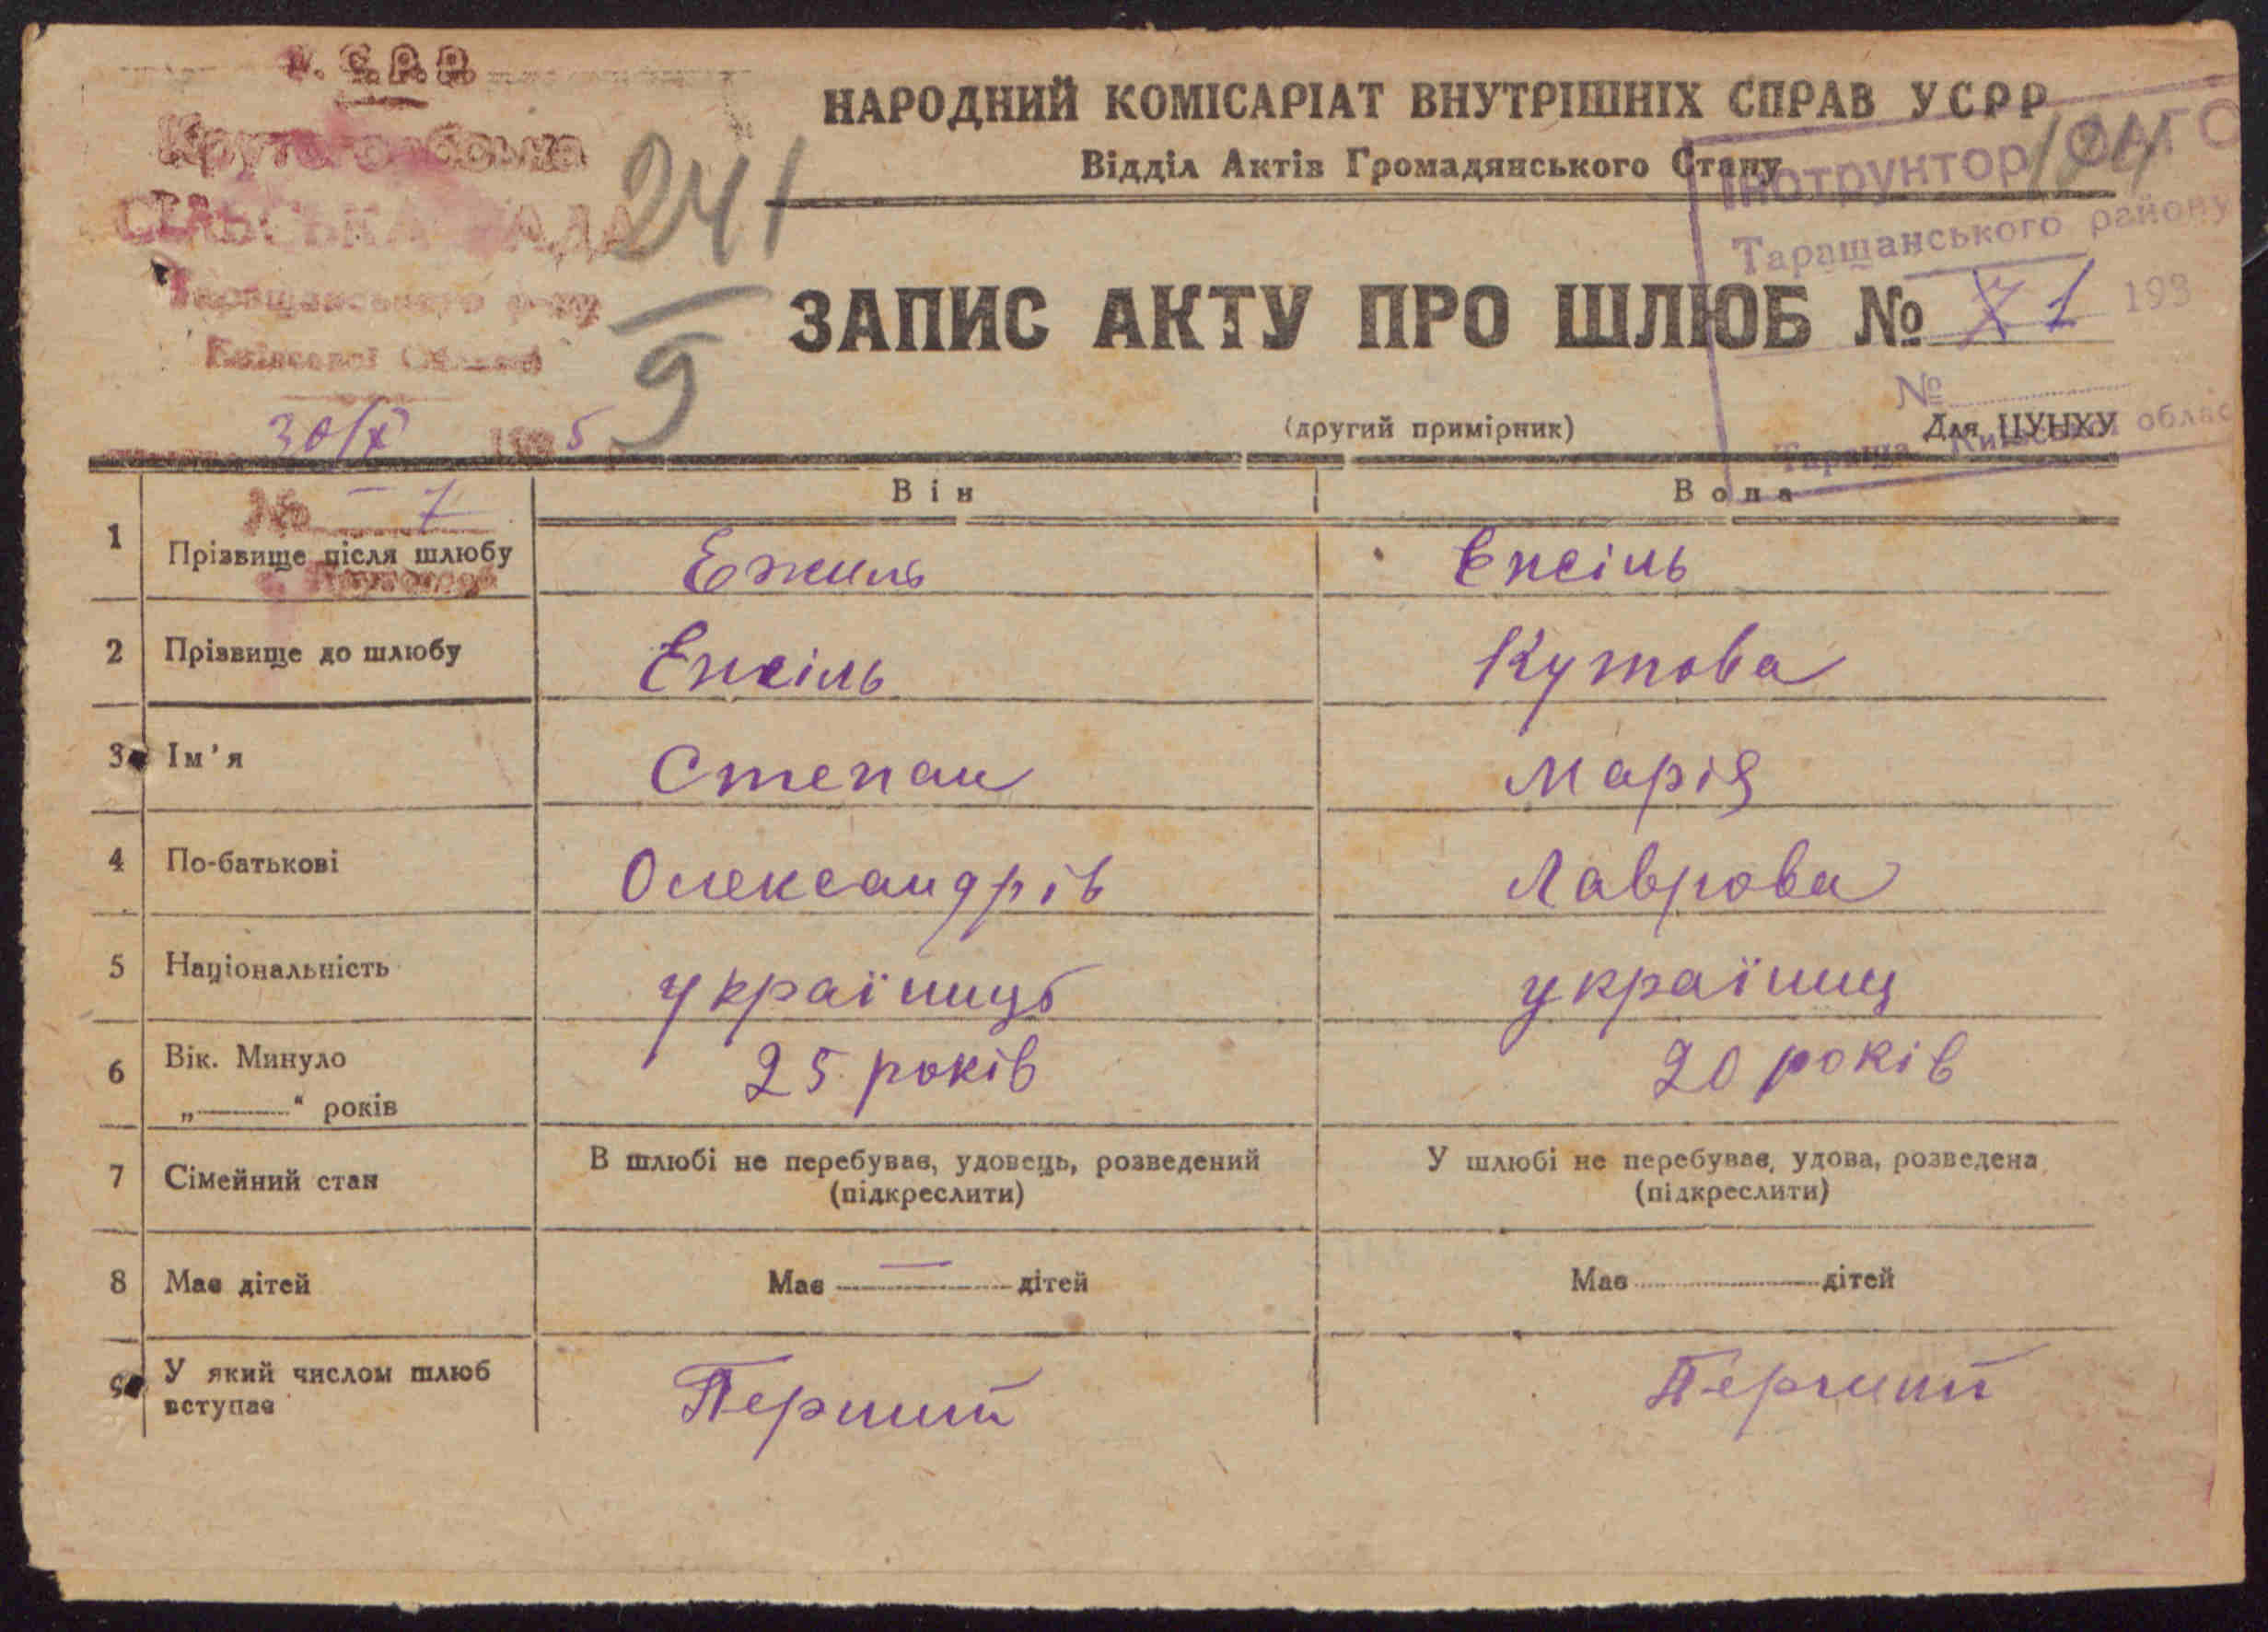 У.С.Р.Р.
СІЛЬСЬКА РАДА
Таращанського р-ну
Київської Області
30/X 1935 р.
№ 7
241
9
НАРОДНИЙ КОМІСАРІАТ ВНУТРІШНІХ СПРАВ УСРР
Відділ Актів Громадянського Стану
Інструктор ОАГС
Таращанського району
193
№
Тараща Київської облас
ЗАПИС АКТУ ПРО ШЛЮБ № 1
(другий примірник)
Для ЦУНХУ
Він Вона
1 Прізвище після шлюбу
2 Прізвище до шлюбу Кутова
3 Ім'я Степан Марія
4 По-батькові Олександрів Лаврова
5 Національність українць україниц
6 Вік. Минуло 25 років 20 років
„ “ років
7 Сімейний стан В шлюбі не перебував, удовець, розведений У шлюбі не перебував, удова, розведена
(підкреслити) (підкреслити)
8 Має дітей Має — дітей Має дітей
9 У який числом шлюб Перший Перший
вступає